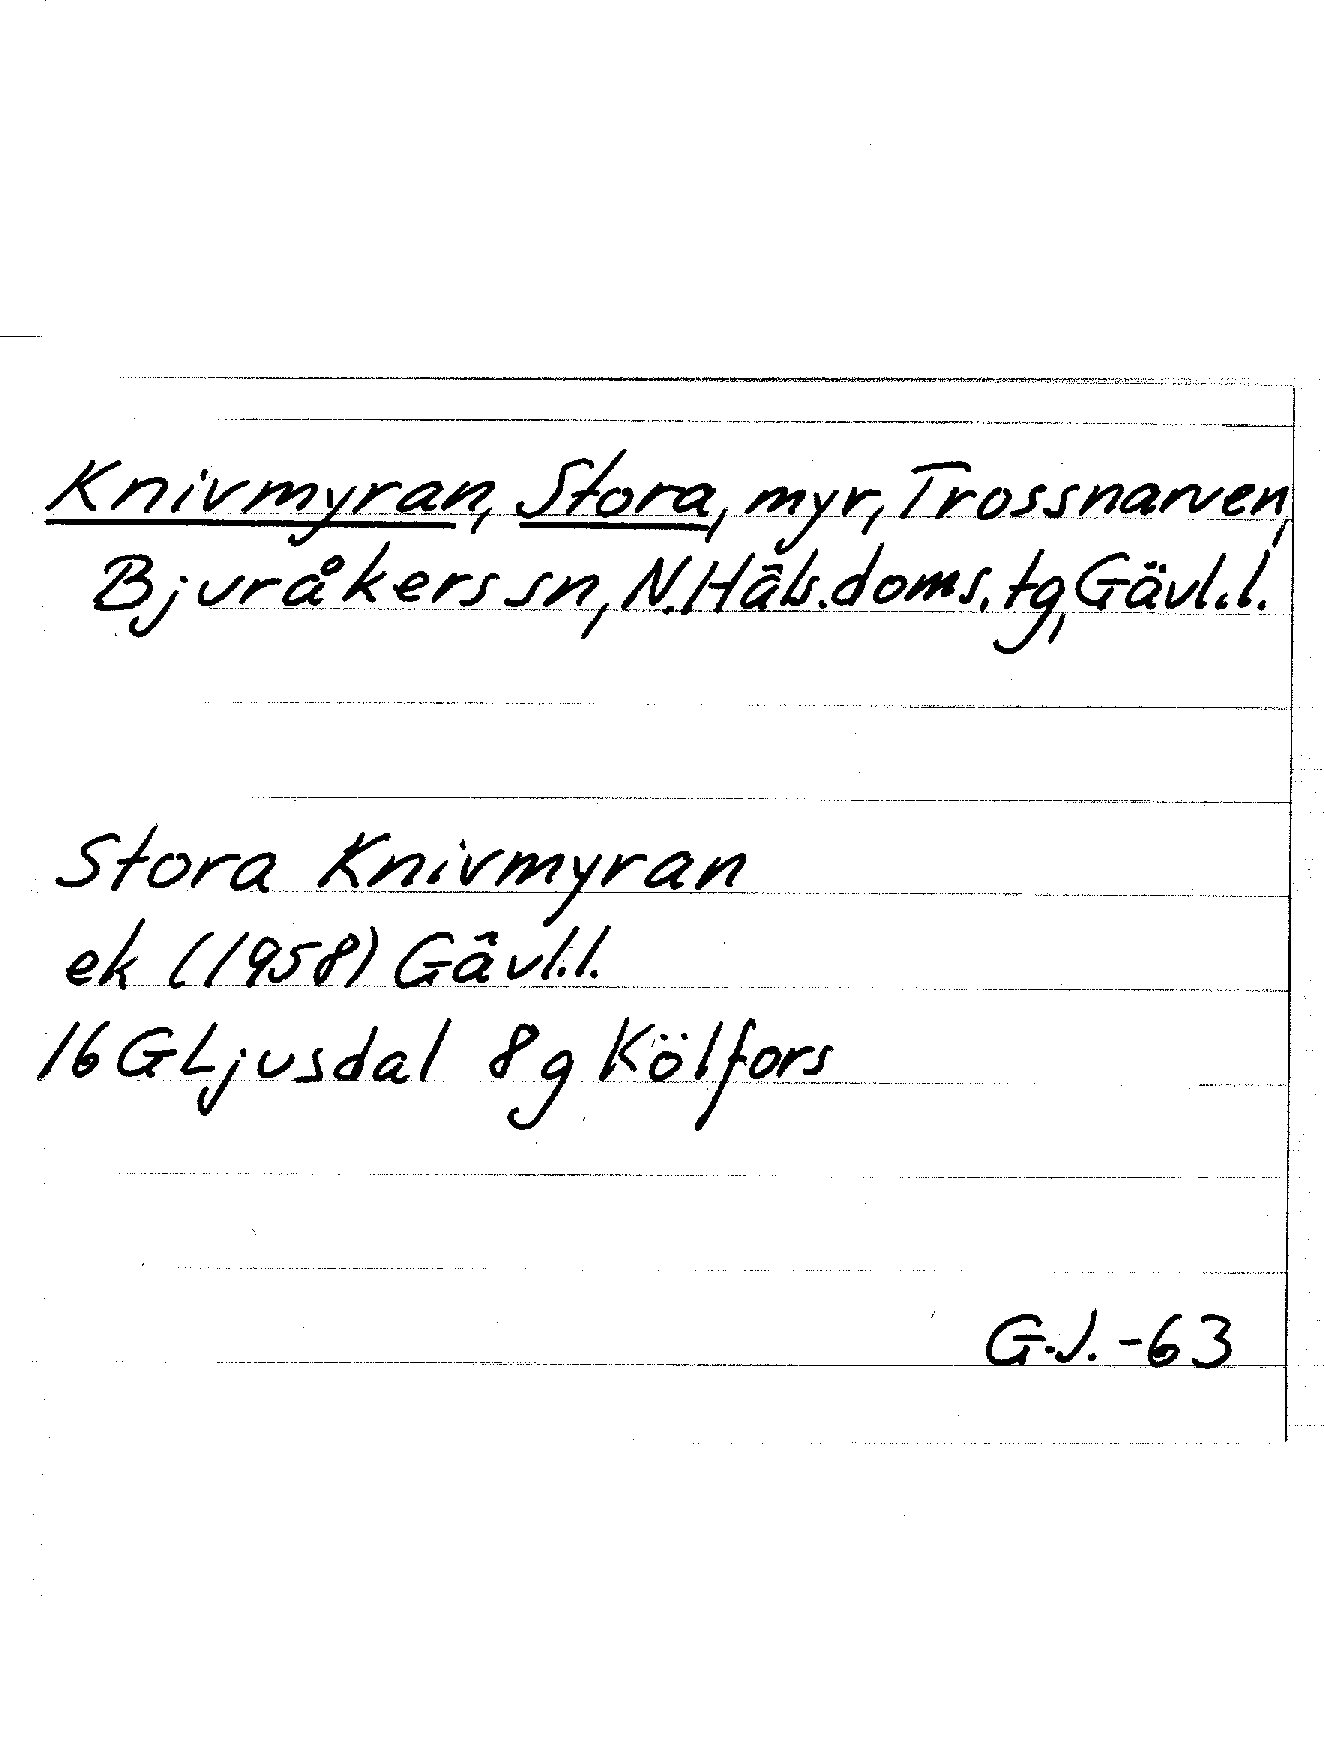 Knivmyran, Stora, myr, Trossnarven,
Bjuråkers sn, N.Häls.doms.tg, Gävl.l.
Stora Knivmyran
ek (1958) Gävl.l.
16 G Ljusdal 8g Kölfors
G.J. -63